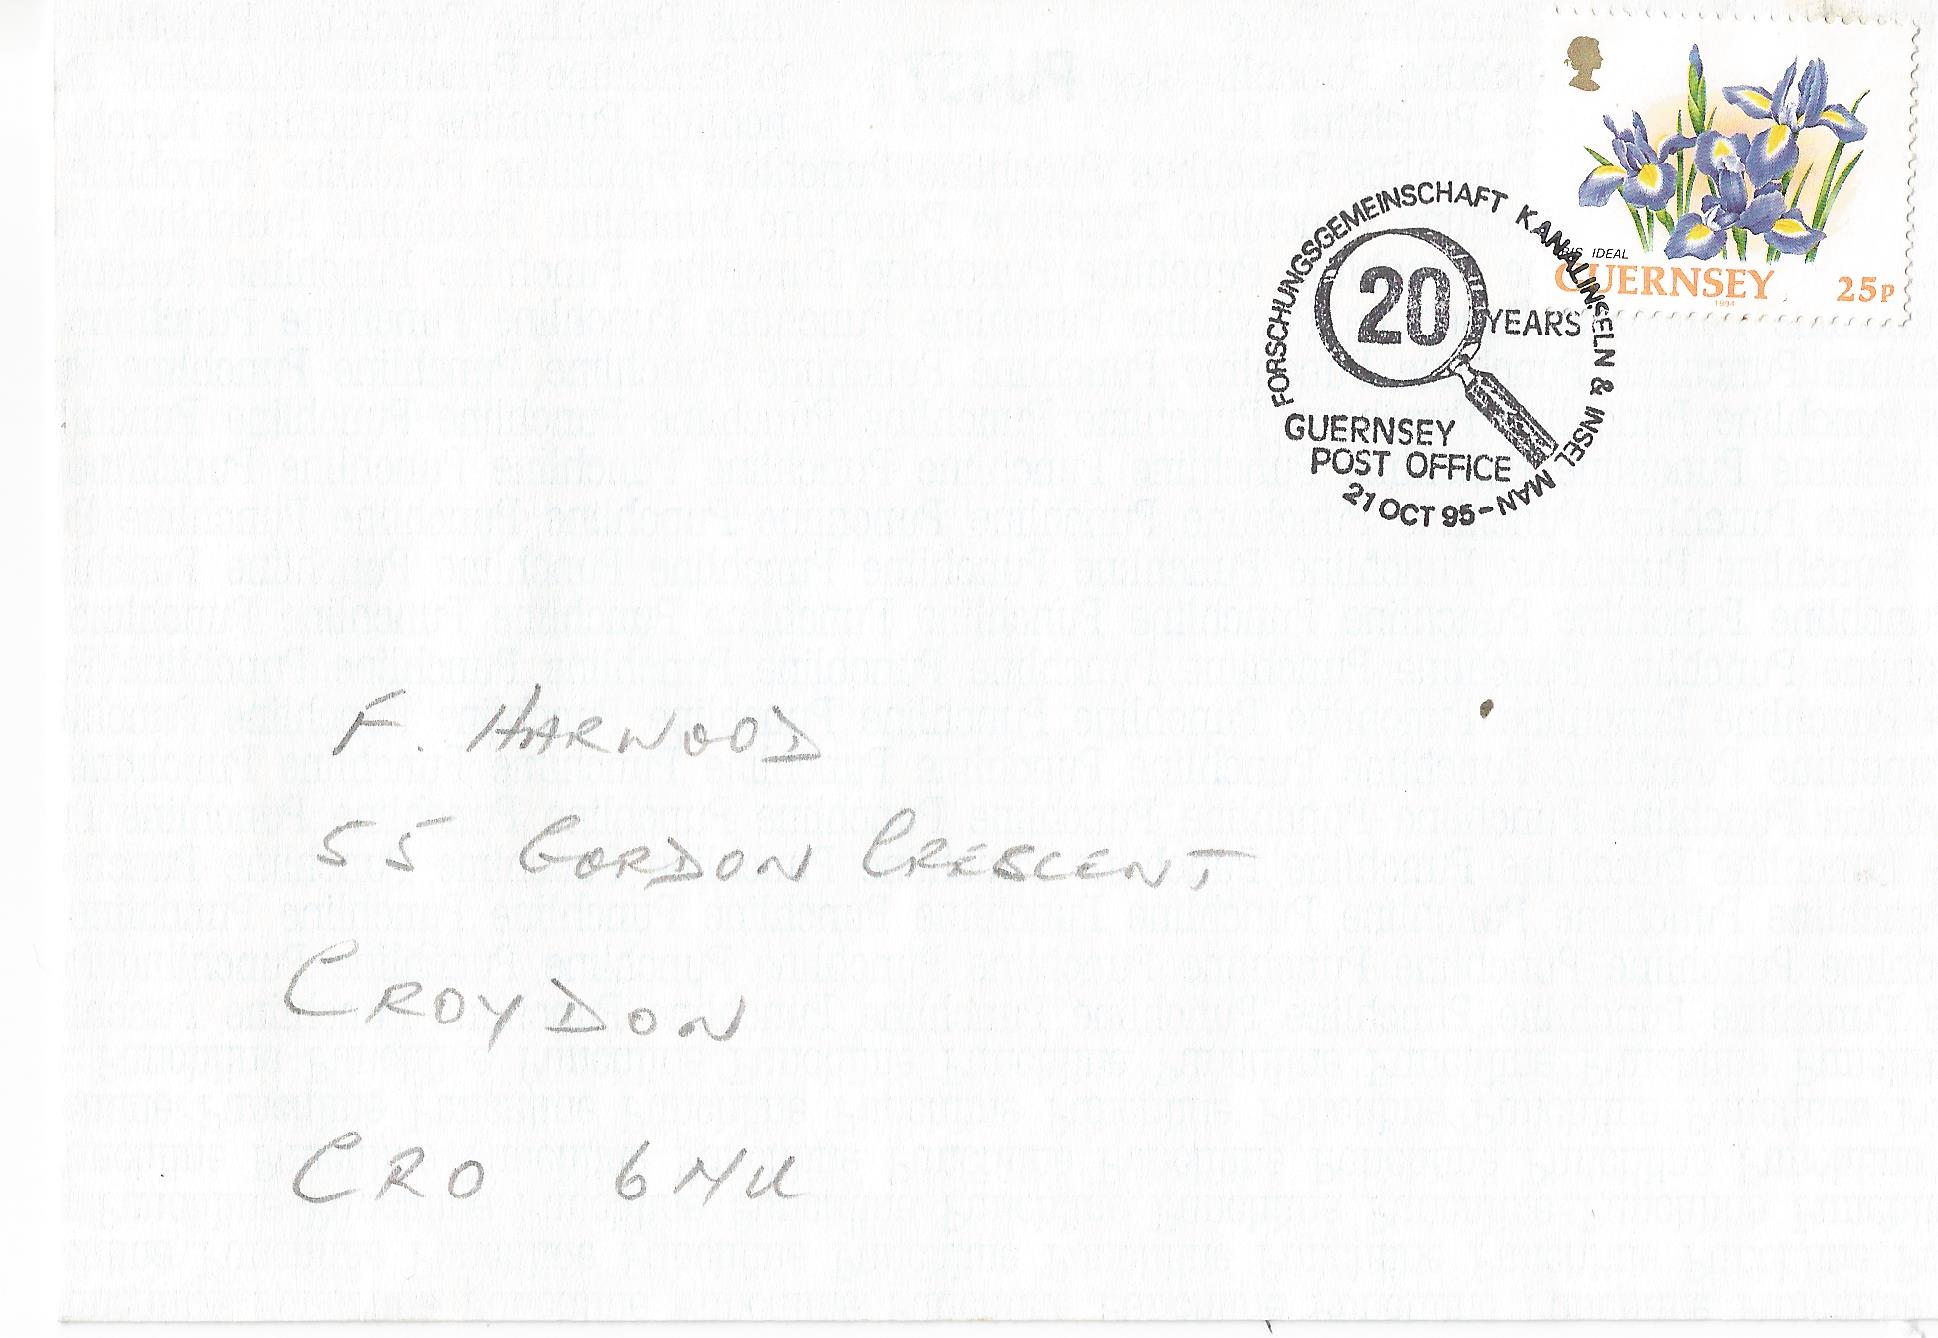 IRIS IDEAL
GUERNSEY 25P
1994
FORSCHUNGSGEMEINSCHAFT KANALINSELN & INSEL MAN
20 YEARS
GUERNSEY
POST OFFICE
21 OCT 95
F. HARWOOD
55 GORDON CRESCENT
CROYDON
CR0